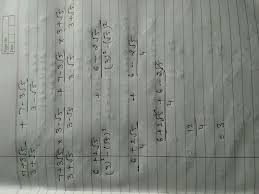 7+3√5 / 3+√5 + 7-3√5 / 3-√5
7+3√5 / 3+√5 × 3-√5 / 3-√5 + 7-3√5 / 3-√5 × 3+√5 / 3+√5
6+2√5 / (3)²-(√5)² + 6-2√5 / (3)²-(√5)²
6+2√5 / 4 + 6-2√5 / 4
6+2√5+6-2√5 / 4
12 / 4
= 3